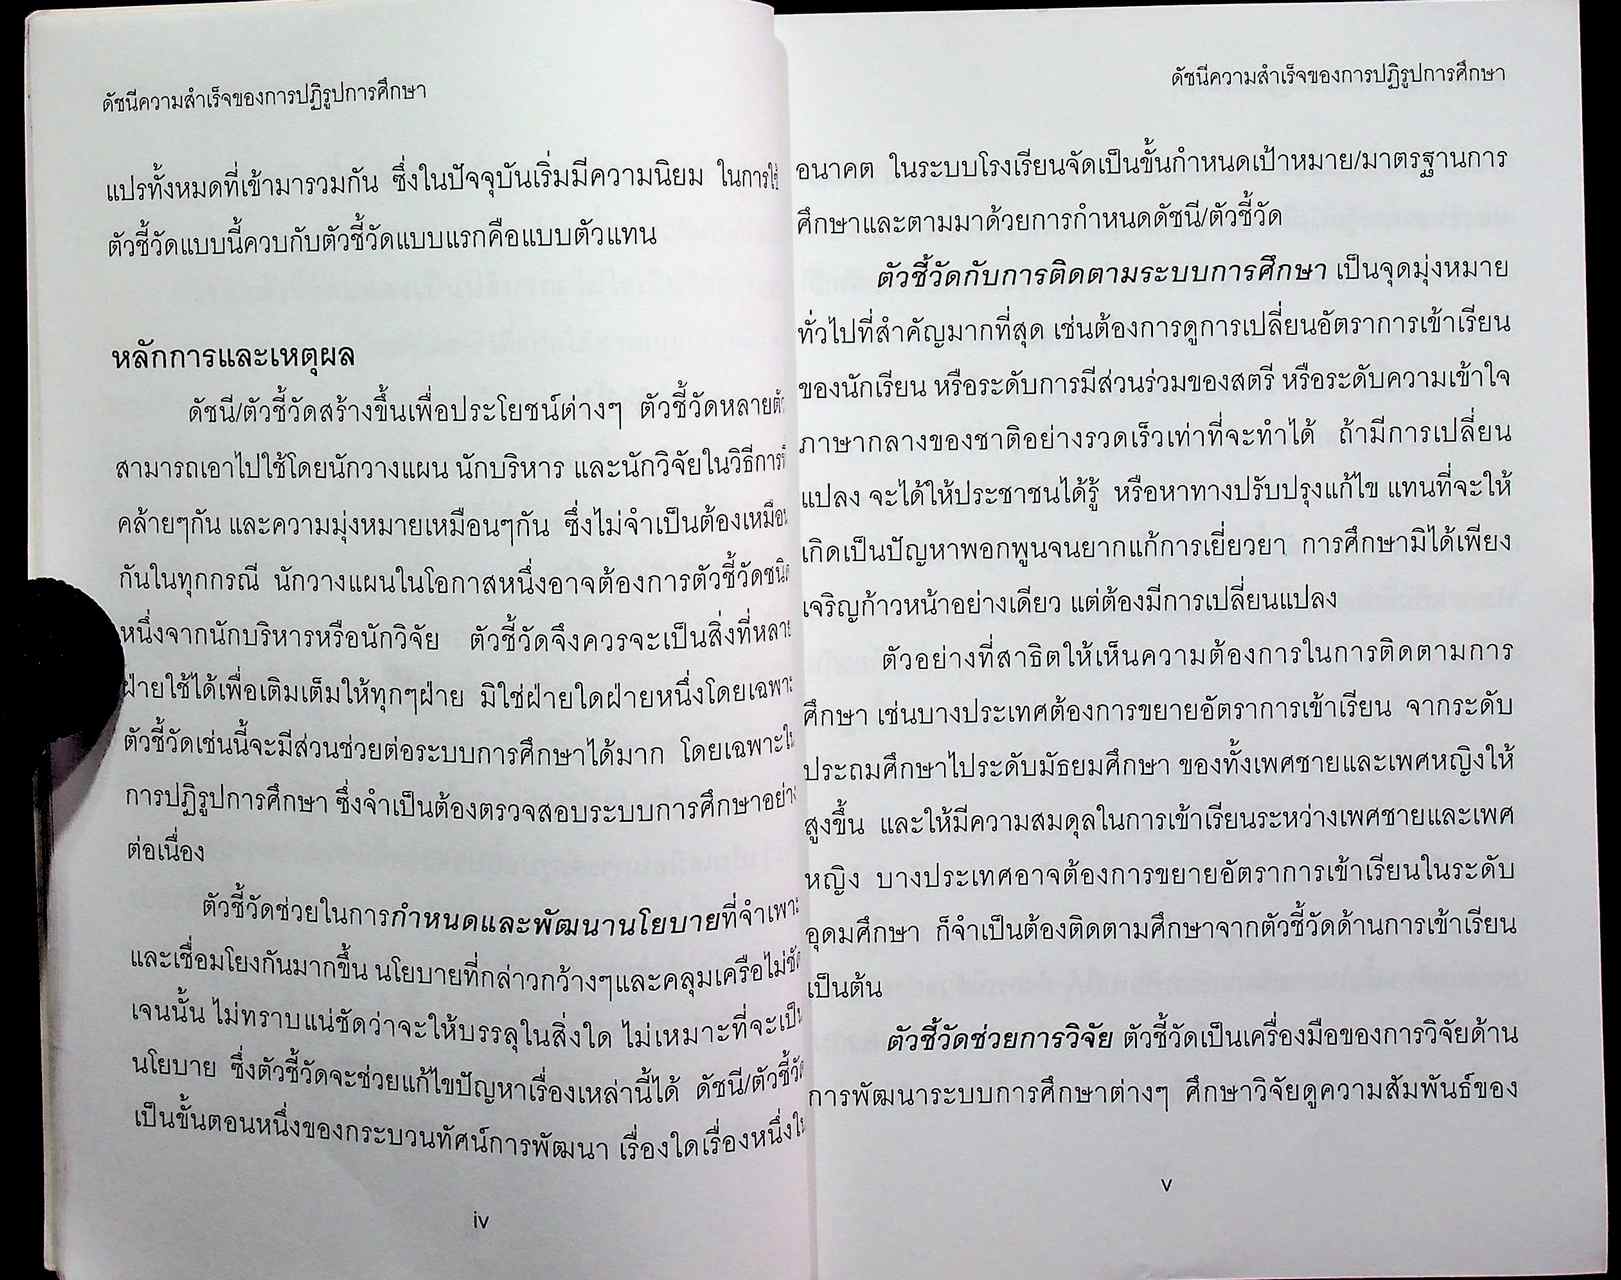 ดัชนีความสำเร็จของการปฏิรูปการศึกษา
แปรทั้งหมดที่เข้ามารวมกัน ซึ่งในปัจจุบันเริ่มมีความนิยม ในการใช้
ตัวชี้วัดแบบนี้ควบกับตัวชี้วัดแบบแรกคือแบบตัวแทน
หลักการและเหตุผล
ดัชนี/ตัวชี้วัดสร้างขึ้นเพื่อประโยชน์ต่างๆ ตัวชี้วัดหลายตัว
สามารถเอาไปใช้โดยนักวางแผน นักบริหาร และนักวิจัยในวิธีการที่
คล้ายๆกัน และความมุ่งหมายเหมือนๆกัน ซึ่งไม่จำเป็นต้องเหมือน
กันในทุกกรณี นักวางแผนในโอกาสหนึ่งอาจต้องการตัวชี้วัดชนิด
หนึ่งจากนักบริหารหรือนักวิจัย ตัวชี้วัดจึงควรจะเป็นสิ่งที่หลาย
ฝ่ายใช้ได้เพื่อเติมเต็มให้ทุกๆฝ่าย มิใช่ฝ่ายใดฝ่ายหนึ่งโดยเฉพาะ
ตัวชี้วัดเช่นนี้จะมีส่วนช่วยต่อระบบการศึกษาได้มาก โดยเฉพาะใน
การปฏิรูปการศึกษา ซึ่งจำเป็นต้องตรวจสอบระบบการศึกษาอย่าง
ต่อเนื่อง
ตัวชี้วัดช่วยในการกำหนดและพัฒนานโยบายที่จำเพาะ
และเชื่อมโยงกันมากขึ้น นโยบายที่กล่าวกว้างๆและคลุมเครือไม่ชัด
เจนนั้น ไม่ทราบแน่ชัดว่าจะให้บรรลุในสิ่งใด ไม่เหมาะที่จะเป็น
นโยบาย ซึ่งตัวชี้วัดจะช่วยแก้ไขปัญหาเรื่องเหล่านี้ได้ ดัชนี/ตัวชี้วัด
เป็นขั้นตอนหนึ่งของกระบวนทัศน์การพัฒนา เรื่องใดเรื่องหนึ่งใน
iv
ดัชนีความสำเร็จของการปฏิรูปการศึกษา
อนาคต ในระบบโรงเรียนจัดเป็นขั้นกำหนดเป้าหมาย/มาตรฐานการ
ศึกษาและตามมาด้วยการกำหนดดัชนี/ตัวชี้วัด
ตัวชี้วัดกับการติดตามระบบการศึกษา เป็นจุดมุ่งหมาย
ทั่วไปที่สำคัญมากที่สุด เช่นต้องการดูการเปลี่ยนอัตราการเข้าเรียน
ของนักเรียน หรือระดับการมีส่วนร่วมของสตรี หรือระดับความเข้าใจ
ภาษากลางของชาติอย่างรวดเร็วเท่าที่จะทำได้ ถ้ามีการเปลี่ยน
แปลง จะได้ให้ประชาชนได้รู้ หรือหาทางปรับปรุงแก้ไข แทนที่จะให้
เกิดเป็นปัญหาพอกพูนจนยากแก้การเยี่ยวยา การศึกษามิได้เพียง
เจริญก้าวหน้าอย่างเดียว แต่ต้องมีการเปลี่ยนแปลง
ตัวอย่างที่สาธิตให้เห็นความต้องการในการติดตามการ
ศึกษา เช่นบางประเทศต้องการขยายอัตราการเข้าเรียน จากระดับ
ประถมศึกษาไประดับมัธยมศึกษา ของทั้งเพศชายและเพศหญิงให้
สูงขึ้น และให้มีความสมดุลในการเข้าเรียนระหว่างเพศชายและเพศ
หญิง บางประเทศอาจต้องการขยายอัตราการเข้าเรียนในระดับ
อุดมศึกษา ก็จำเป็นต้องติดตามศึกษาจากตัวชี้วัดด้านการเข้าเรียน
เป็นต้น
ตัวชี้วัดช่วยการวิจัย ตัวชี้วัดเป็นเครื่องมือของการวิจัยด้าน
การพัฒนาระบบการศึกษาต่างๆ ศึกษาวิจัยดูความสัมพันธ์ของ
v